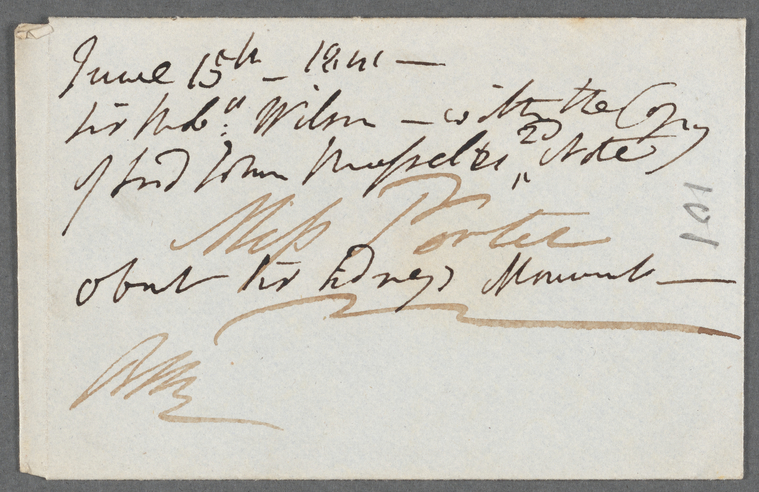 June 15th – 1841 –
Sir Robt: Wilson – with the Copy
of Lord John Russell's 2d Note
Miss Porter
about Sir Sidney's Monument –
RW
101